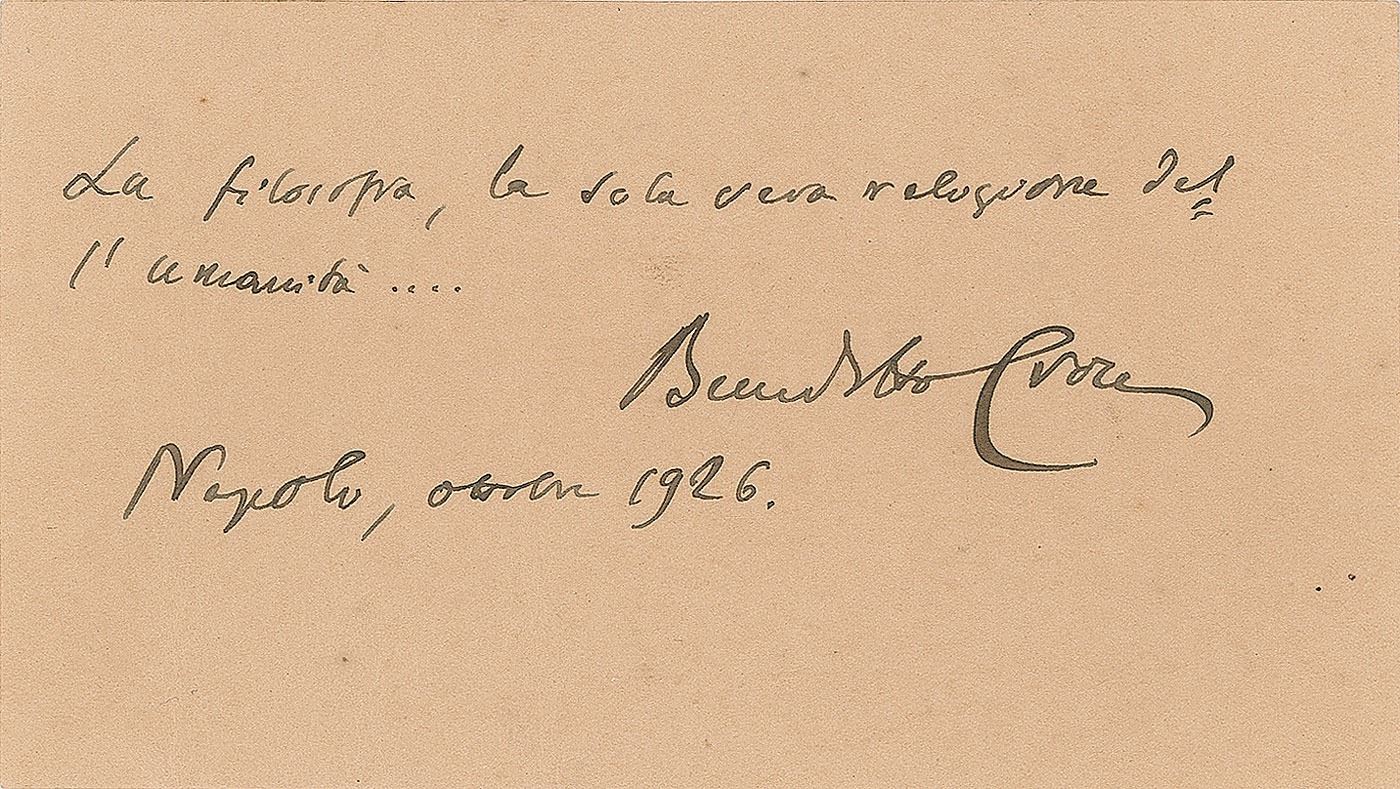 La filosofia, la sola vera religione del=
l'umanità ....
Benedetto Croce
Napoli, ottobre 1926.